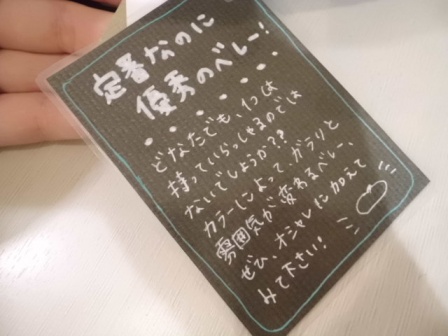 定番なのに
優秀のベレー!
どなたでも、1つは
持っていらっしゃるのでは
ないでしょうか??
カラーによって、ガラリと
雰囲気が変わるベレー、
ぜひ、オシャレに加えて
みて下さい!